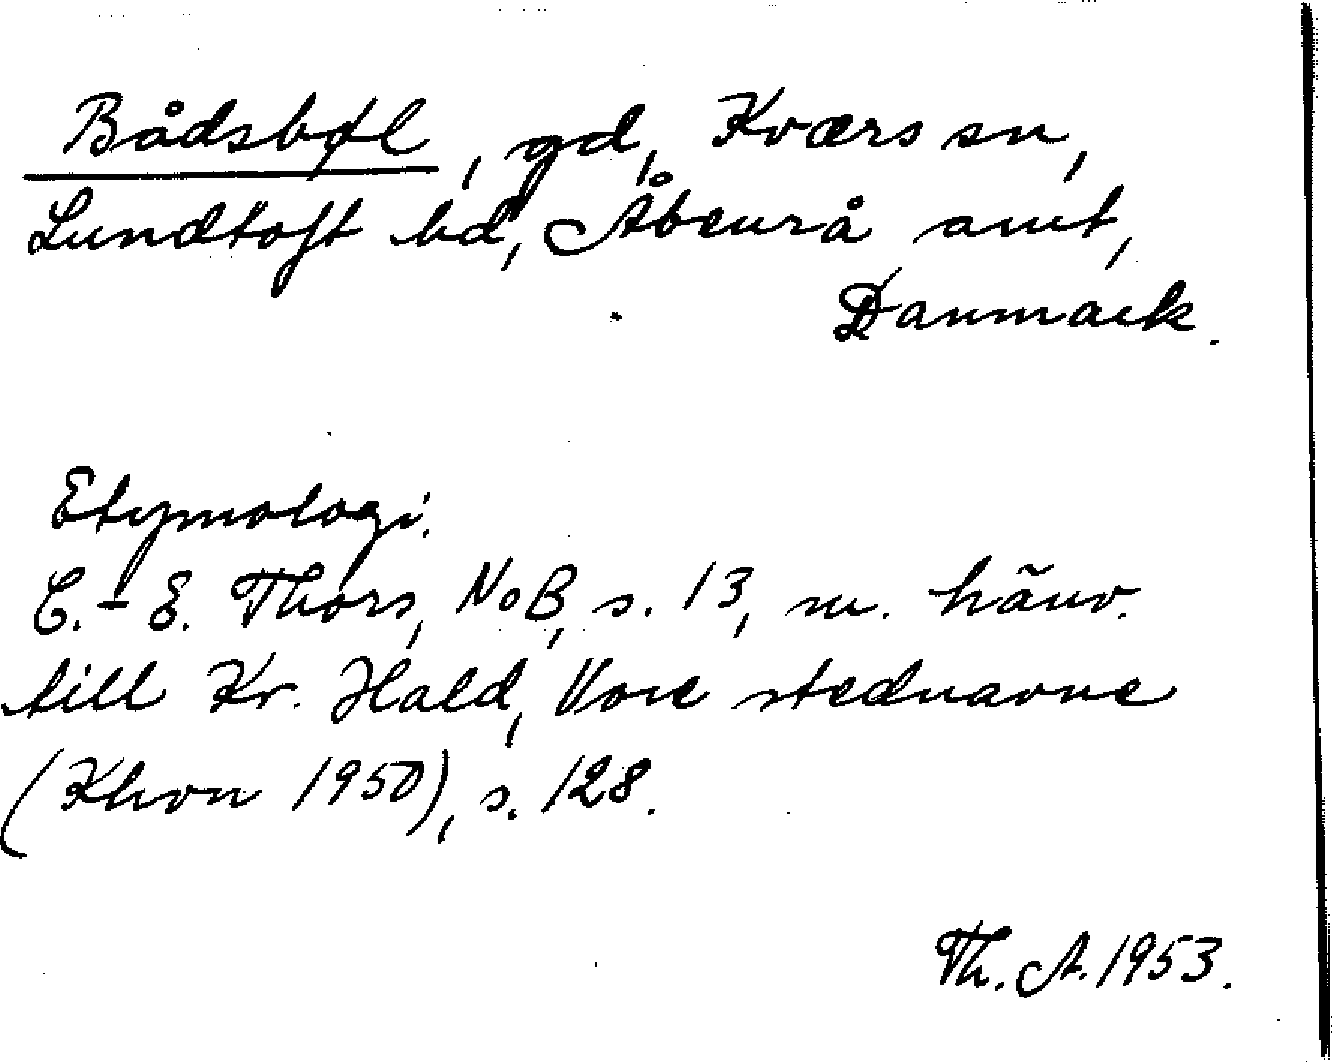 Bådsbøl, gd, Kværs sn,
Lundtoft hd, Åbenrå amt,
Danmark.
Etymologi.
C.-E. Thors, NoB, s. 13, m. hänv.
till Kr. Hald, Vore stednavne
(Khvn 1950), s. 128.
Th. A. 1953.